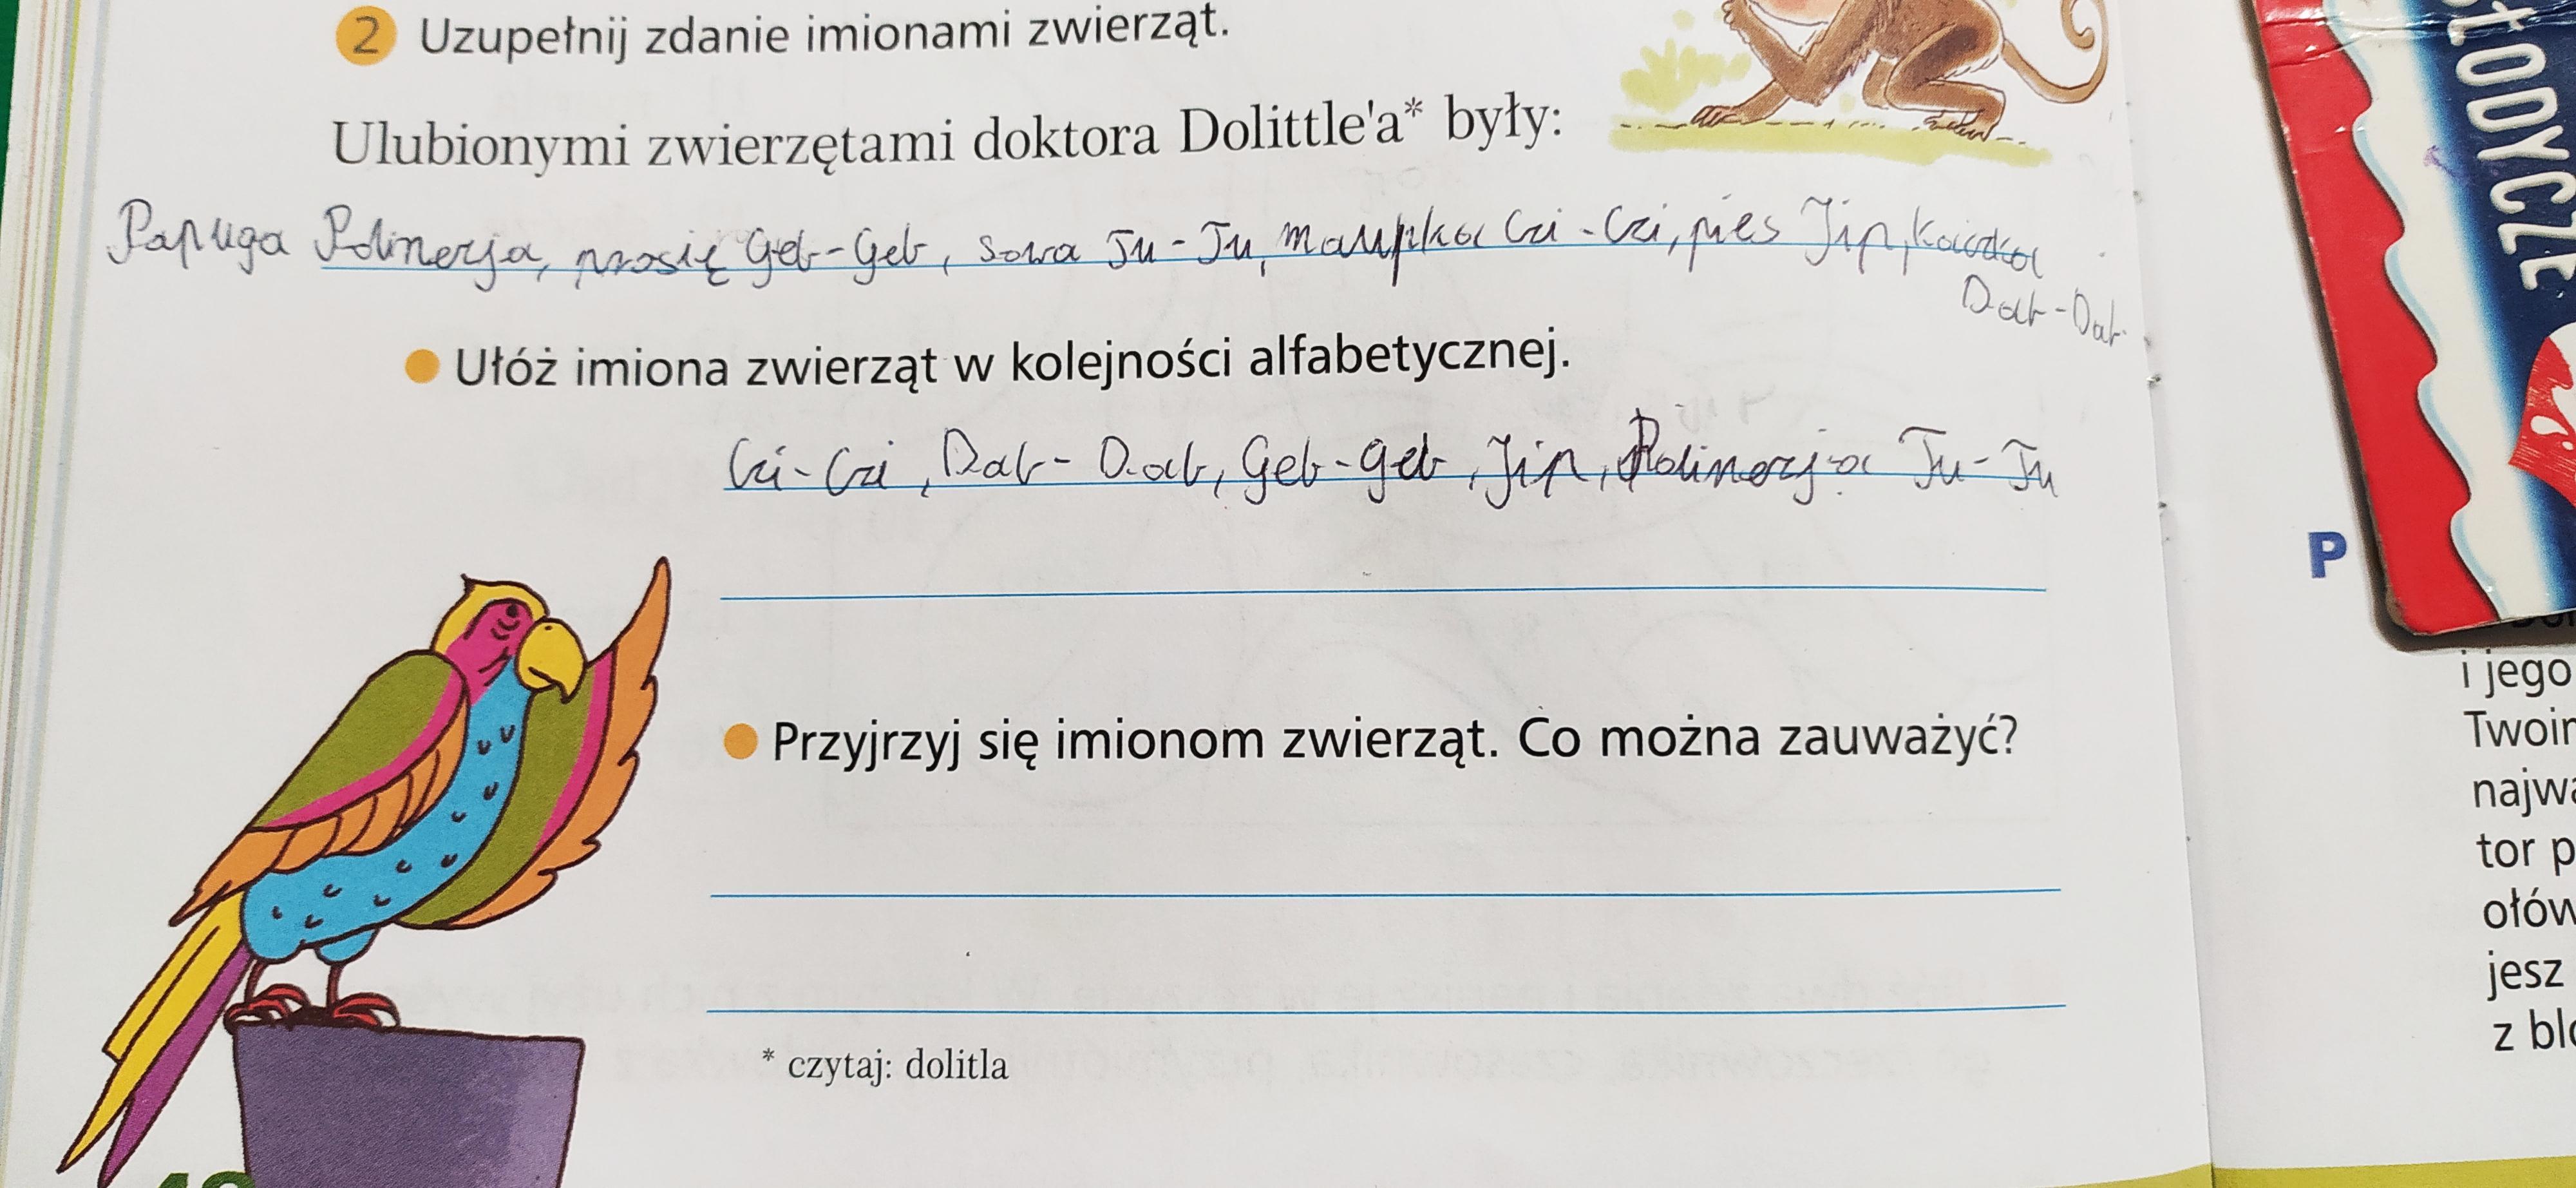 2 Uzupełnij zdanie imionami zwierząt.
Ulubionymi zwierzętami doktora Dolittle'a* były:
Papuga Polinezja, prosię Geb-Geb, sowa Tu-Tu, małpka Czi-Czi, pies Jip, kaczka
Dab-Dab.
Ułóż imiona zwierząt w kolejności alfabetycznej.
Czi-Czi, Dab-Dab, Geb-geb, Jip, Polinezja Tu-Tu
Przyjrzyj się imionom zwierząt. Co można zauważyć?
* czytaj: dolitla
ŁODYCZE
P
i jego
Twoir
najwa
tor p
ołów
jesz
z blo